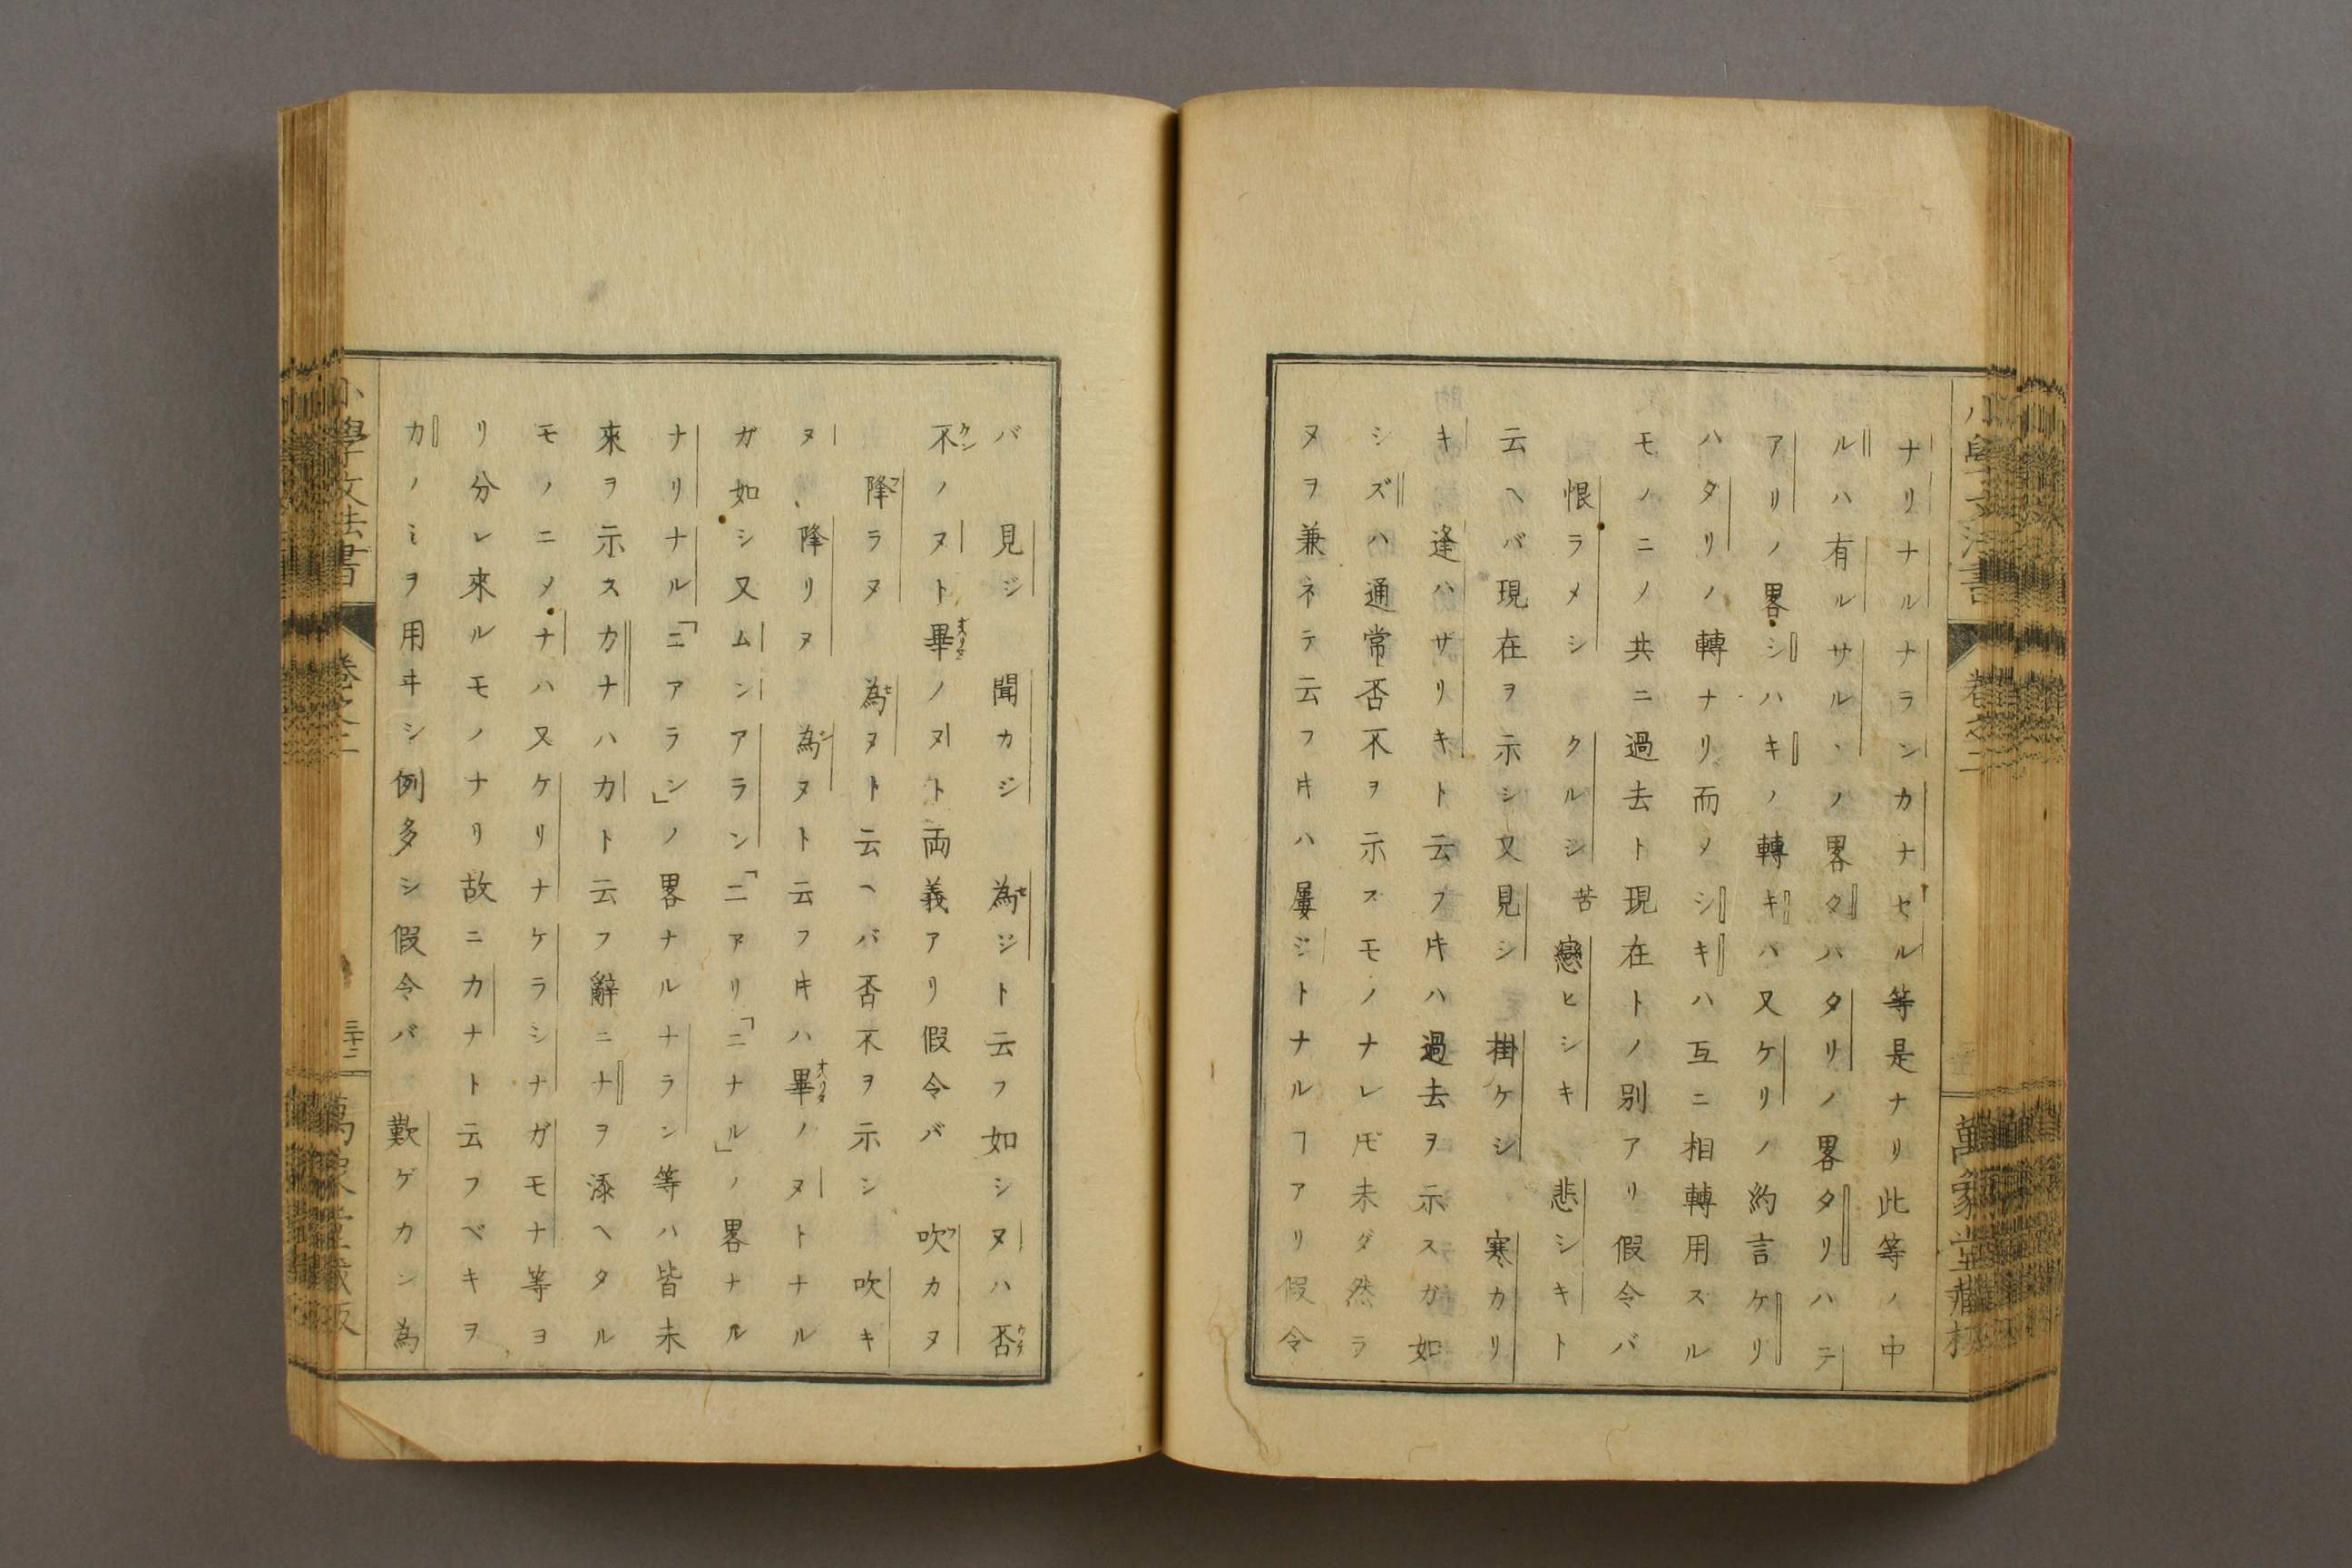 ナリナルナランカナセル等是ナリ此等ノ中
ルハ有ルサルヽノ畧タハタリノ畧タリハテ
アリノ畧シハキノ轉キハ又ケリノ約言ケリ
ハタリノ轉ナリ而〆シキハ互ニ相轉用スル
モノニノ共ニ過去ト現在トノ別アリ假令バ
恨ラメシ クルシ苦 戀ヒシキ 悲シキト
云ヘバ現在ヲ示シ又見シ 掛ケシ 寒カリ
キ 逢ハザリキト云フ𪜈ハ過去ヲ示スガ如
シズハ通常否不ヲ示スモノナレ𪜈未ダ然ラ
ヌヲ兼ネテ云フ𪜈ハ屢ジトナルヿアリ假令
小學文法書 卷之二 萬象堂藏板
バ 見ジ 聞カジ 為セジト云フ如シヌハ否
不ノヌト畢ノヌト両義アリ假令バ 吹フカヌ
降フラヌ 為セヌト云ヘバ否不ヲ示シ 吹キ
ヌ 降リヌ 為シヌト云フ𪜈ハ畢ノヌトナル
ガ如シ又ムンアラン「ニアリ「ニナル」ノ畧ナル
ナリナル「ニアラシ」ノ畧ナルナラン等ハ皆未
來ヲ示スカナハカト云フ辭ニナヲ添ヘタル
モノニ〆ナハ又ケリナケラシナガモナ等ヨ
リ分レ來ルモノナリ故ニカナト云フベキヲ
カノミヲ用ヰシ例多シ假令バ 歎ゲカン為
小學文法書 卷之二 三十二 萬象堂藏板